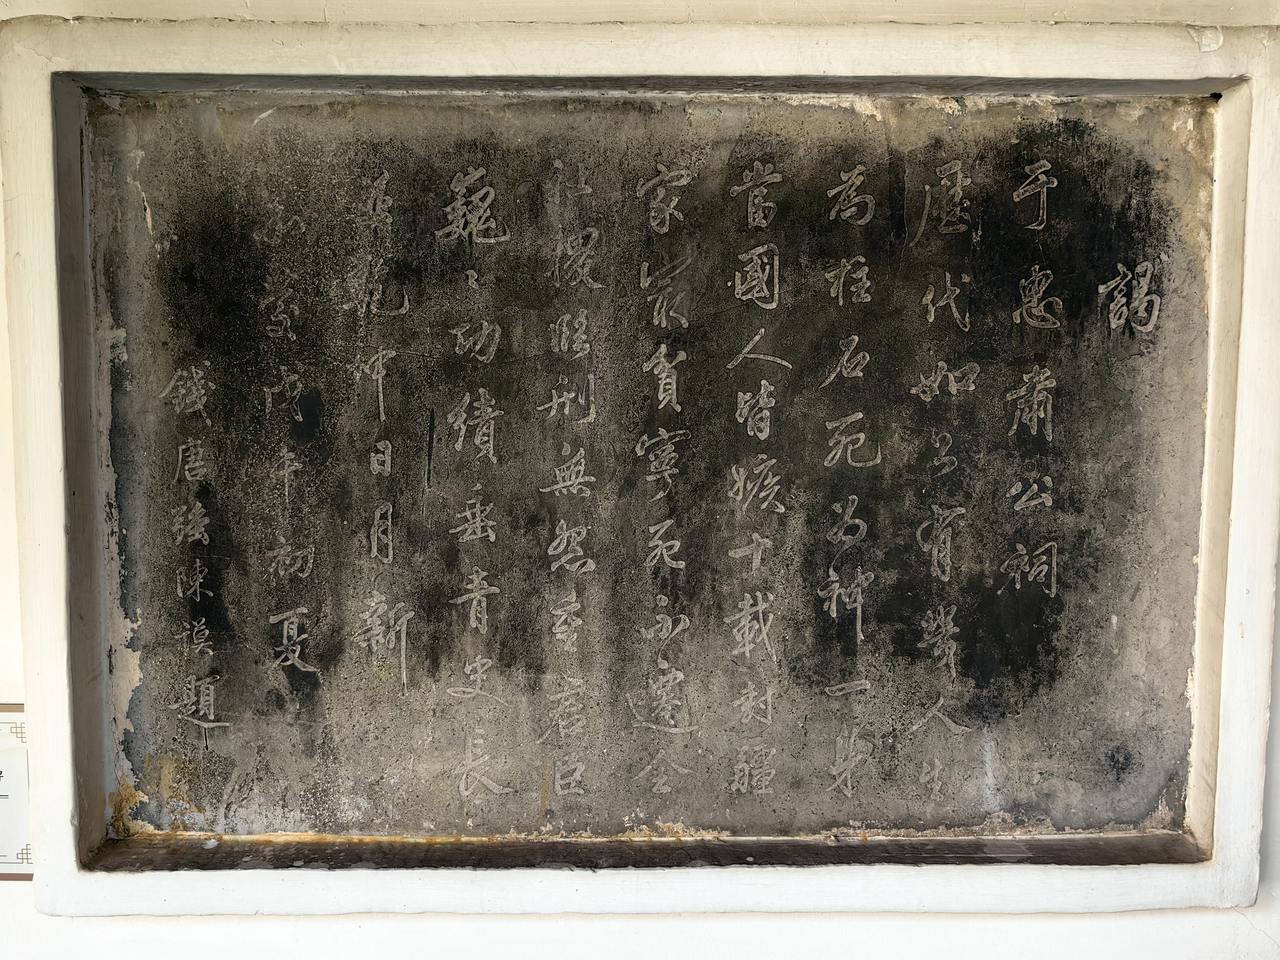 謁
于忠肅公祠
歷代如公有幾人生
為柱石死為神一身
當國人皆嫉十載封疆
家最貧寧死不遷全
社稷臨刑無怨至君臣
巍〻功績垂青史長
日月新
戊午初夏
錢唐強陳謨題